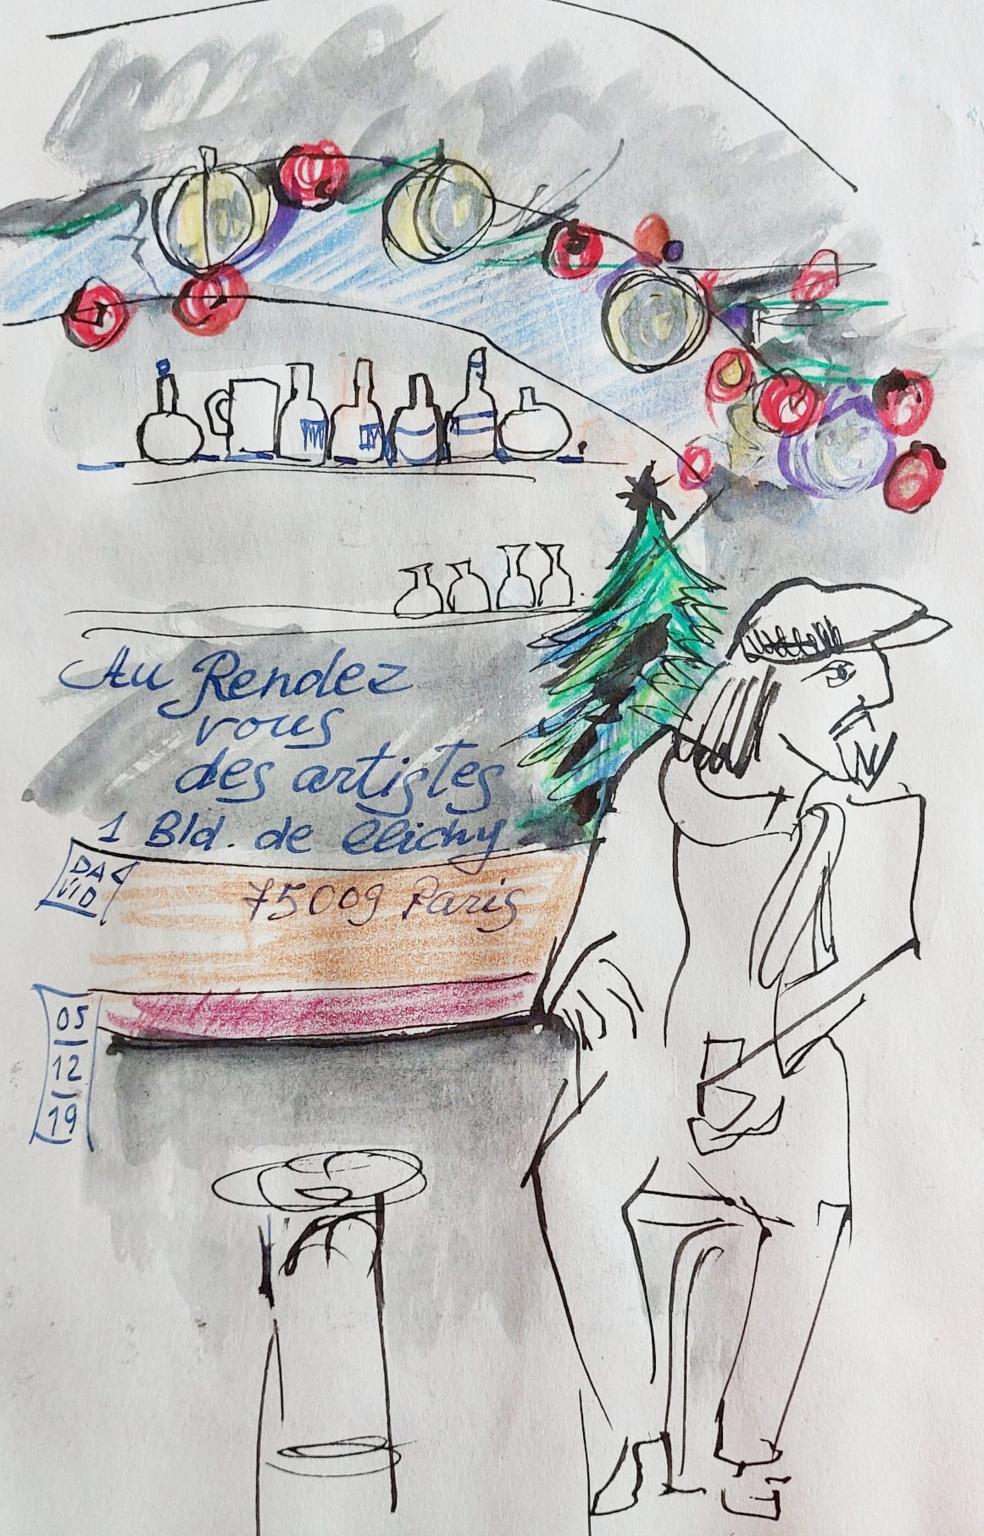 Au Rendez
vous
des artistes
1 Bld. de Clichy
75009 Paris
DA
VID
05
12
19